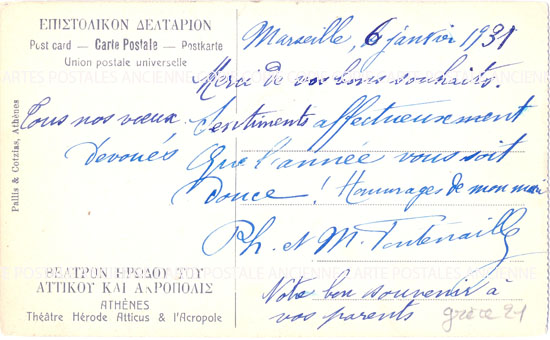 ΕΠΙΣΤΟΛΙΚΟΝ ΔΕΛΤΑΡΙΟΝ
Post card — Carte Postale — Postkarte
Union postale universelle
Pallis & Cotzias, Athènes
Marseille, 6 janvier 1931
Merci de vos bons souhaits.
Tous nos vœux
Sentiments affectueusement
Devoués
Que l'année vous soit
douce! Hommages de mon mari
Ph. et M. Fontenaille
Votre bon souvenir à
vos parents
grèce 21
ΘΕΑΤΡΟΝ ΗΡΩΔΟΥ ΤΟΥ
ΑΤΤΙΚΟΥ ΚΑΙ ΑΚΡΟΠΟΛΙΣ
ATHÈNES
Théâtre Hérode Atticus & l'Acropole
CARTES POSTALES ANCIENNES